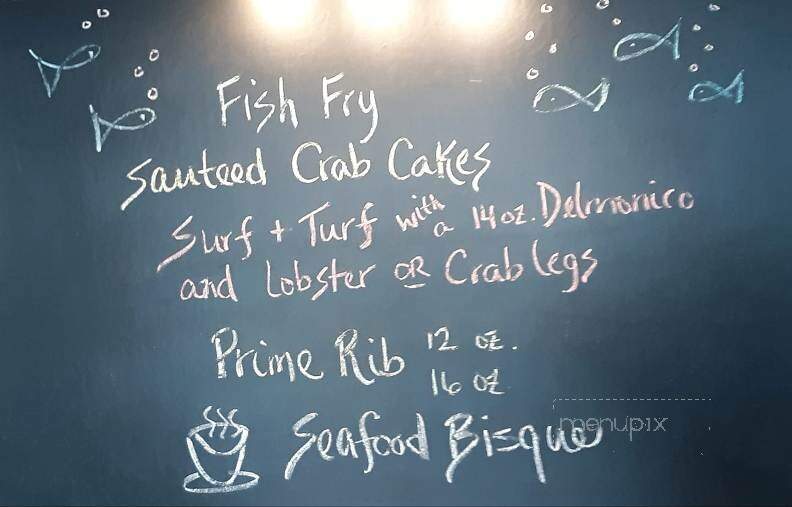 Fish Fry
Sauteed Crab Cakes
Surf + Turf with a 14 oz. Delmonico
and Lobster OR Crab legs
Prime Rib 12 oz.
16 oz
Seafood Bisque
menupix